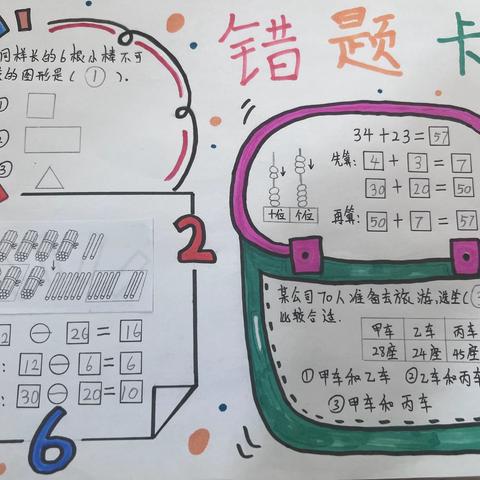 错题卡
同样长的6根小棒不可
的图形是(①).
①
②
③
2
2 ⊖ 26 = 16
: 12 ⊖ 6 = 6
: 30 ⊖ 20 = 10
6
34+23=57
先算: 4 + 3 = 7
30 + 20 = 50
再算: 50 + 7 = 57
十位 个位
某公司70人准备去旅游,选坐(③
比较合适.
甲车 乙车 丙车
28座 24座 45座
①甲车和乙车 ②乙车和丙车
③甲车和丙车